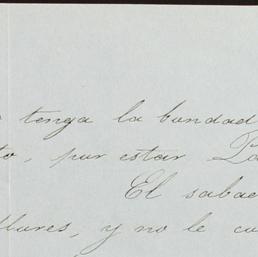 tenga la bondad
to, por estar
El sabad
llares, y no le